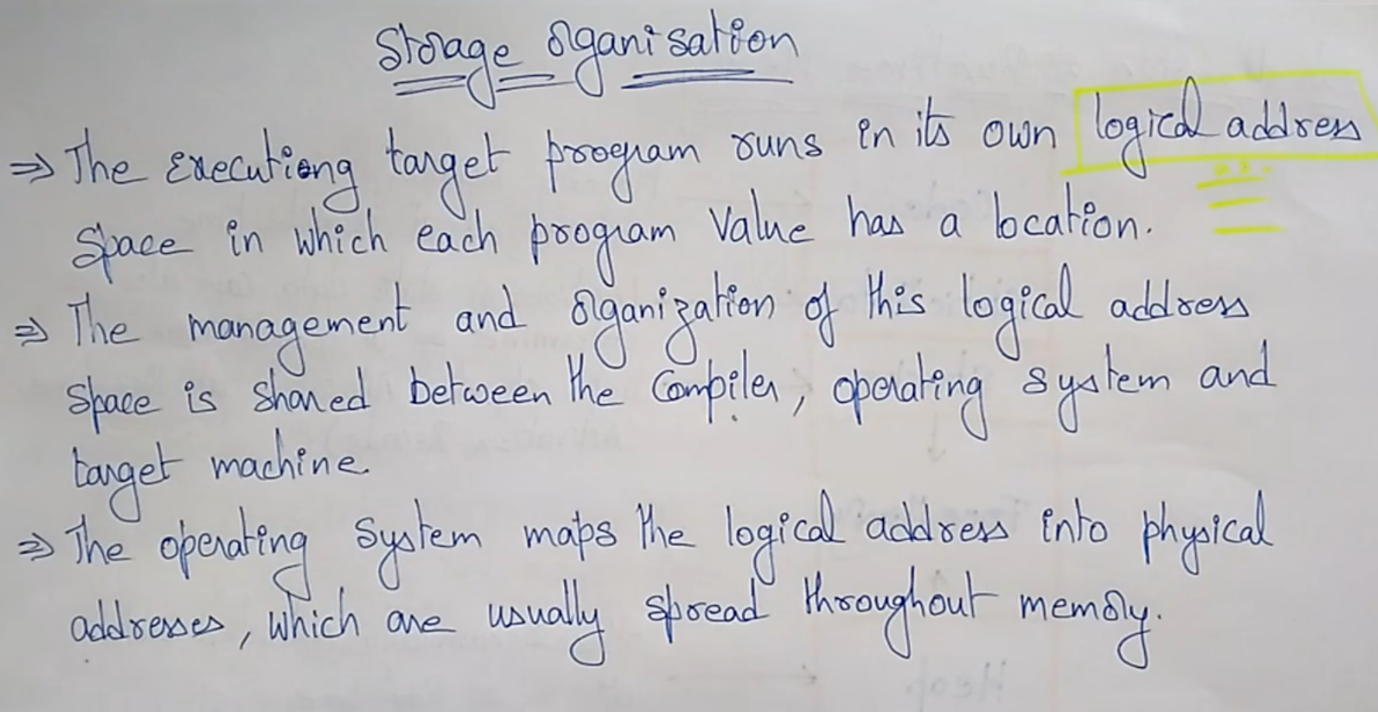 Storage Organisation
⇒ The Executiong target program runs in its own logical address
Space in which each program Value has a location.
⇒ The management and Organization of this logical address
Space is shared between the Compiler, operating system and
target machine.
⇒ The operating System maps the logical address into physical
addresses, which are usually spread throughout memory.